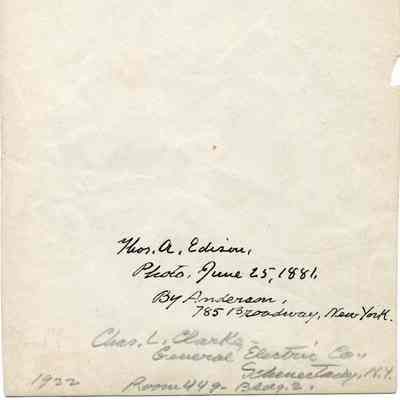 Thos. A. Edison,
Photo. June 25, 1881.
By Anderson,
785 Broadway, New York.
Chas. L. Clarke -
General Electric Co.,
Schenectady, N.Y.
1932 Room 449 - Bldg. 2.